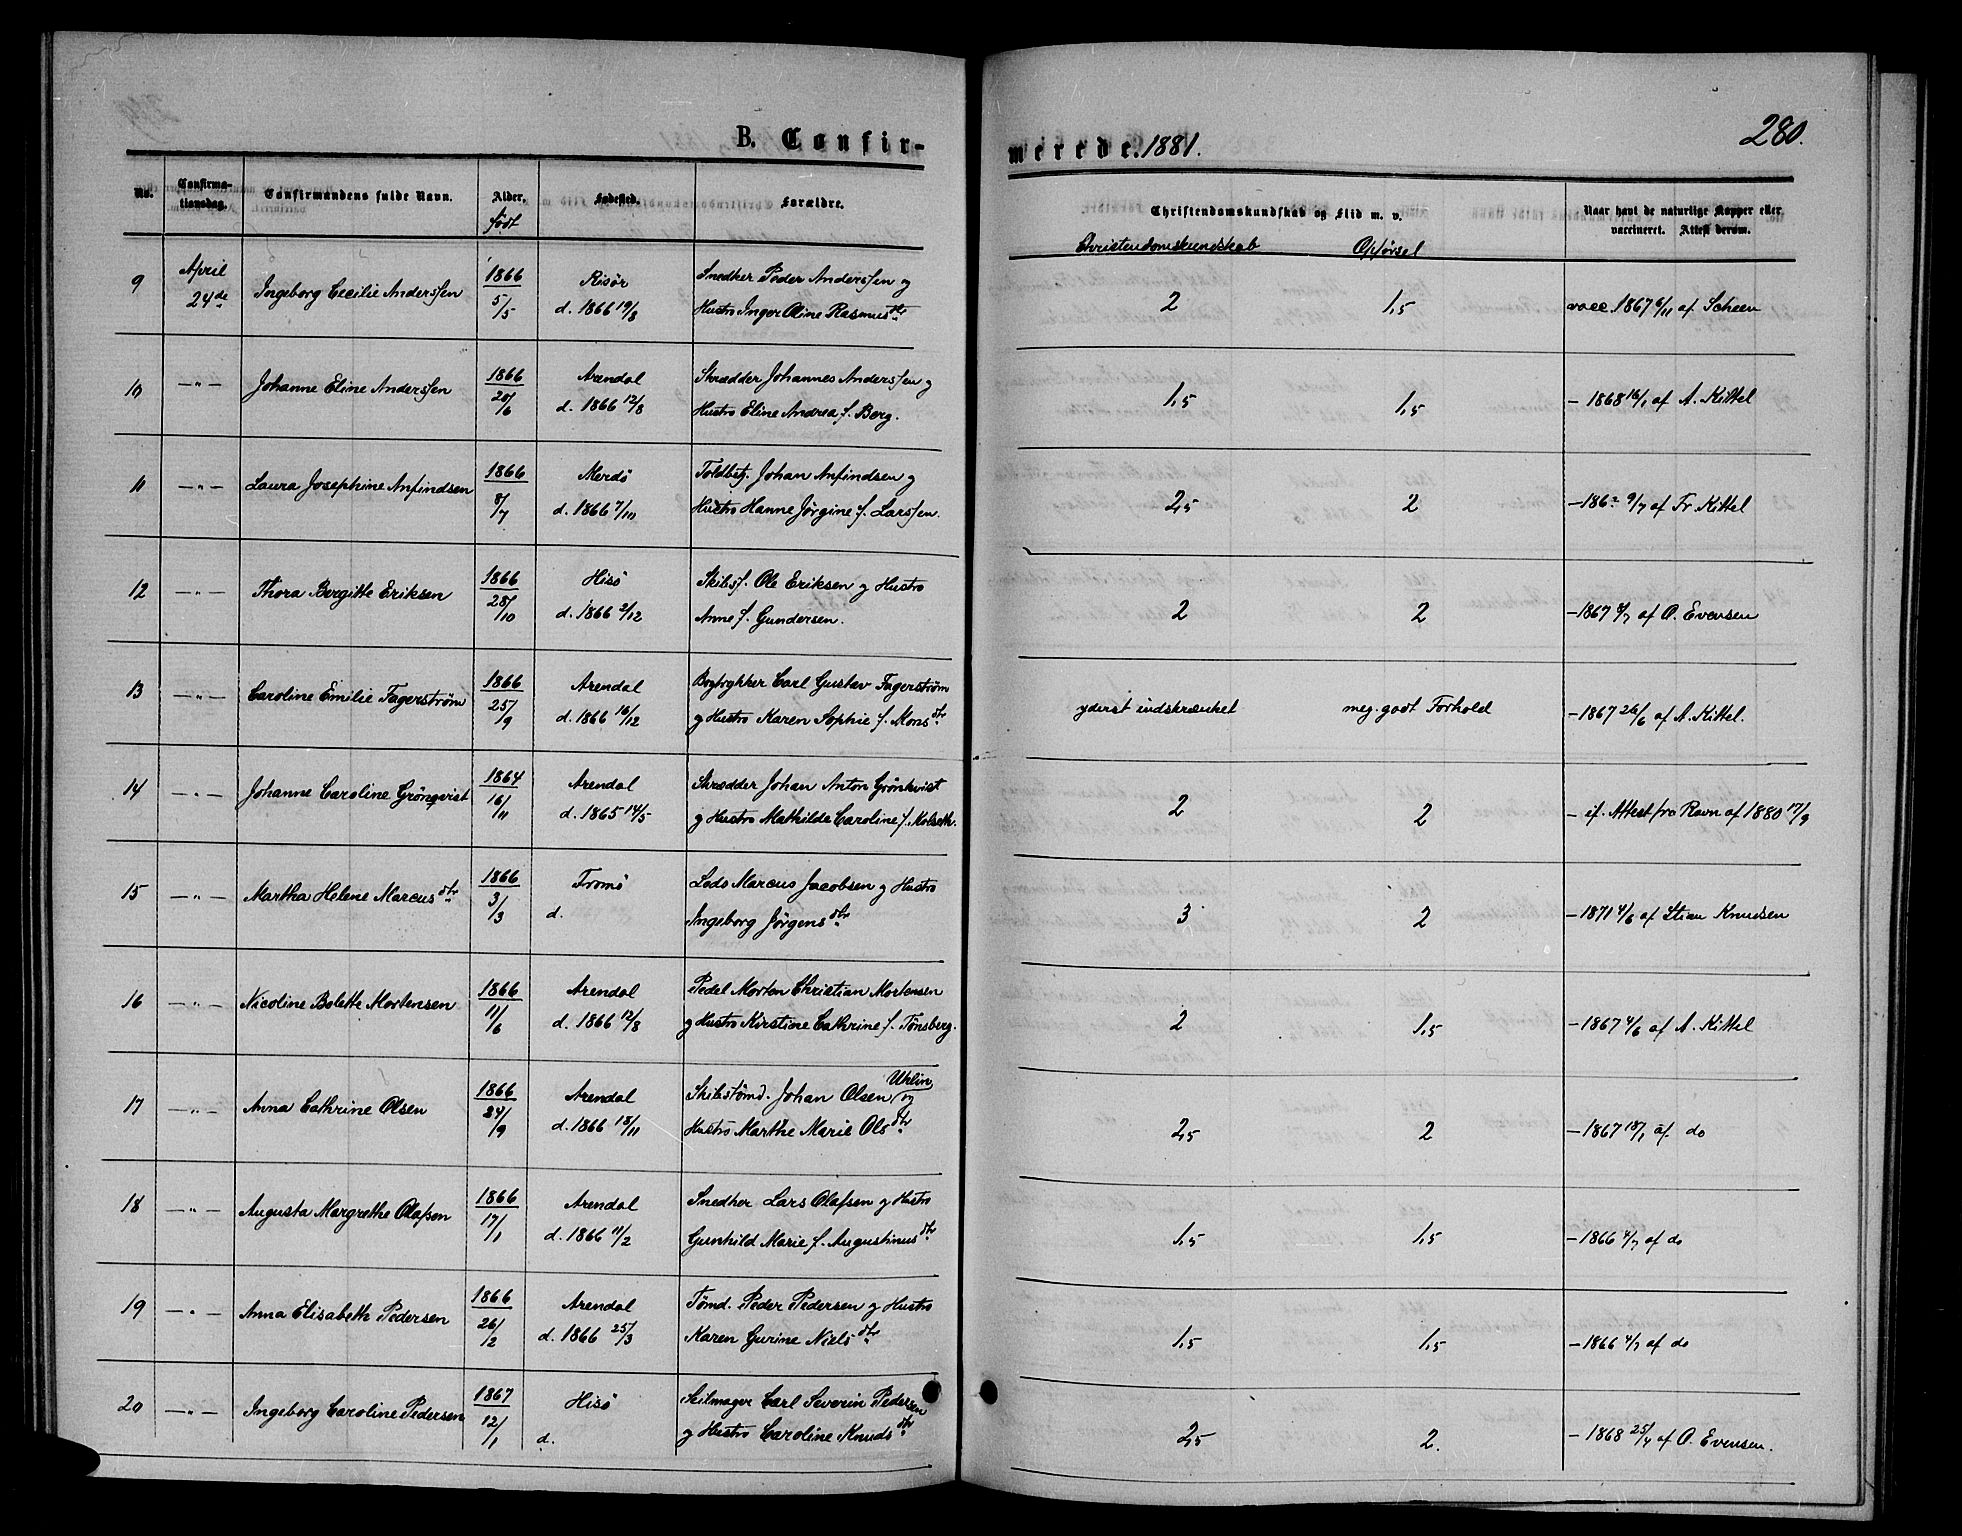 280.
B. Confirmerede. 1881.
No. | Confirmationsdag. | Confirmandens fulde Navn. | Alder. født | Fødested. | Forældre. | Christendomskundskab og Flid m. v. | Naar havt de naturlige Kopper eller vaccineret. Attest derom.
Christendomskundskab | Opførsel
9 | April 24de | Ingeborg Cecilie Anderssen | 1866 5/5 | Risör d. 1866 19/8 | Snedker Peder Anderssen og Hustro Inger Oline Rasmusdtr | 2 | 1,5 | vacc. 1867 6/11 af Scheen
10 | —"— | Johanne Eline Anderssen | 1866 20/6 | Arendal d. 1866 12/8 | Skrædder Johannes Anderssen og Hustro Eline Andrea f. Berg. | 1,5 | 1,5 | — 1868 16/1 af A. Kittel
11 | —"— | Laura Josephine Anfindsen | 1866 8/7 | Merdö d. 1866 7/10 | Toldbtj. Johan Anfindsen og Hustro Hanne Jörgine f. Larssen. | 2,5 | 2 | — 9/7 af Fr. Kittel
12 | —"— | Thora Bergitte Eriksen | 1866 28/10 | Hisö d. 1866 2/12 | Skibsf. Ole Eriksen og Hustro Anne f. Gundersen. | 2 | 2 | — 1867 af O. Evensen
13 | —"— | Caroline Emilie Fagerström | 1866 25/9 | Arendal d. 1866 16/12 | Bogtrykker Carl Gustav Fagerström og Hustro Karen Sophie f. Monsdtr | yderst indskrænket | meg. godt Forhold | — 1867 26/6 af A. Kittel.
14 | —"— | Johanne Caroline Grönqvist | 1864 16/11 | Arendal d. 1865 14/5 | Skrædder Johan Anton Grönkvist og Hustro Mathilde Caroline f. | 2 | 2 | — if. Attest fra Ravn af 1880 17/9
15 | —"— | Martha Helene Marcusdtr | 1866 3/3 | Tromö d. | Lods Marcus Jacobsen og Hustro Ingeborg Jörgensdtr | 3 | 2 | — 1871 4/6 af Stian Knudsen
16 | —"— | Nicoline Bolette Mortensen | 1866 11/6 | Arendal d. 1866 12/8 | Pedel Morten Christian Mortensen og Hustro Kirstine Cathrine f. Tönsberg. | 2 | 1,5 | — 1867 4/6 af A. Kittel
17 | —"— | Anna Cathrine Olsen | 1866 24/9 | Arendal d. 1866 18/11 | Skibstömd. Johan Olsen Uhlin og Hustro Marthe Marie Olsdtr | 2,5 | 2 | — 1867 18/1 af do
18 | —"— | Augusta Margrethe Olafsen | 1866 17/1 | Arendal d. 1866 11/2 | Snedker Lars Olafsen og Hustro Gunhild Marie f. Augustinusdtr | 1,5 | 1,5 | — 1866 4/7 af do
19 | —"— | Anna Elisabeth Pedersen | 1866 26/2 | Arendal d. 1866 25/3 | Tömd. Peder Pedersen og Hustro Karen Gurine Nielsdtr | 1,5 | 1,5 | — 1866 4/7 af do
20 | —"— | Ingeborg Caroline Pedersen | 1867 12/1 | Hisö d. | Seilmager Carl Severin Pedersen og Hustro Caroline Knudsdtr | 2,5 | 2. | — 1868 25/4 af O. Evensen.